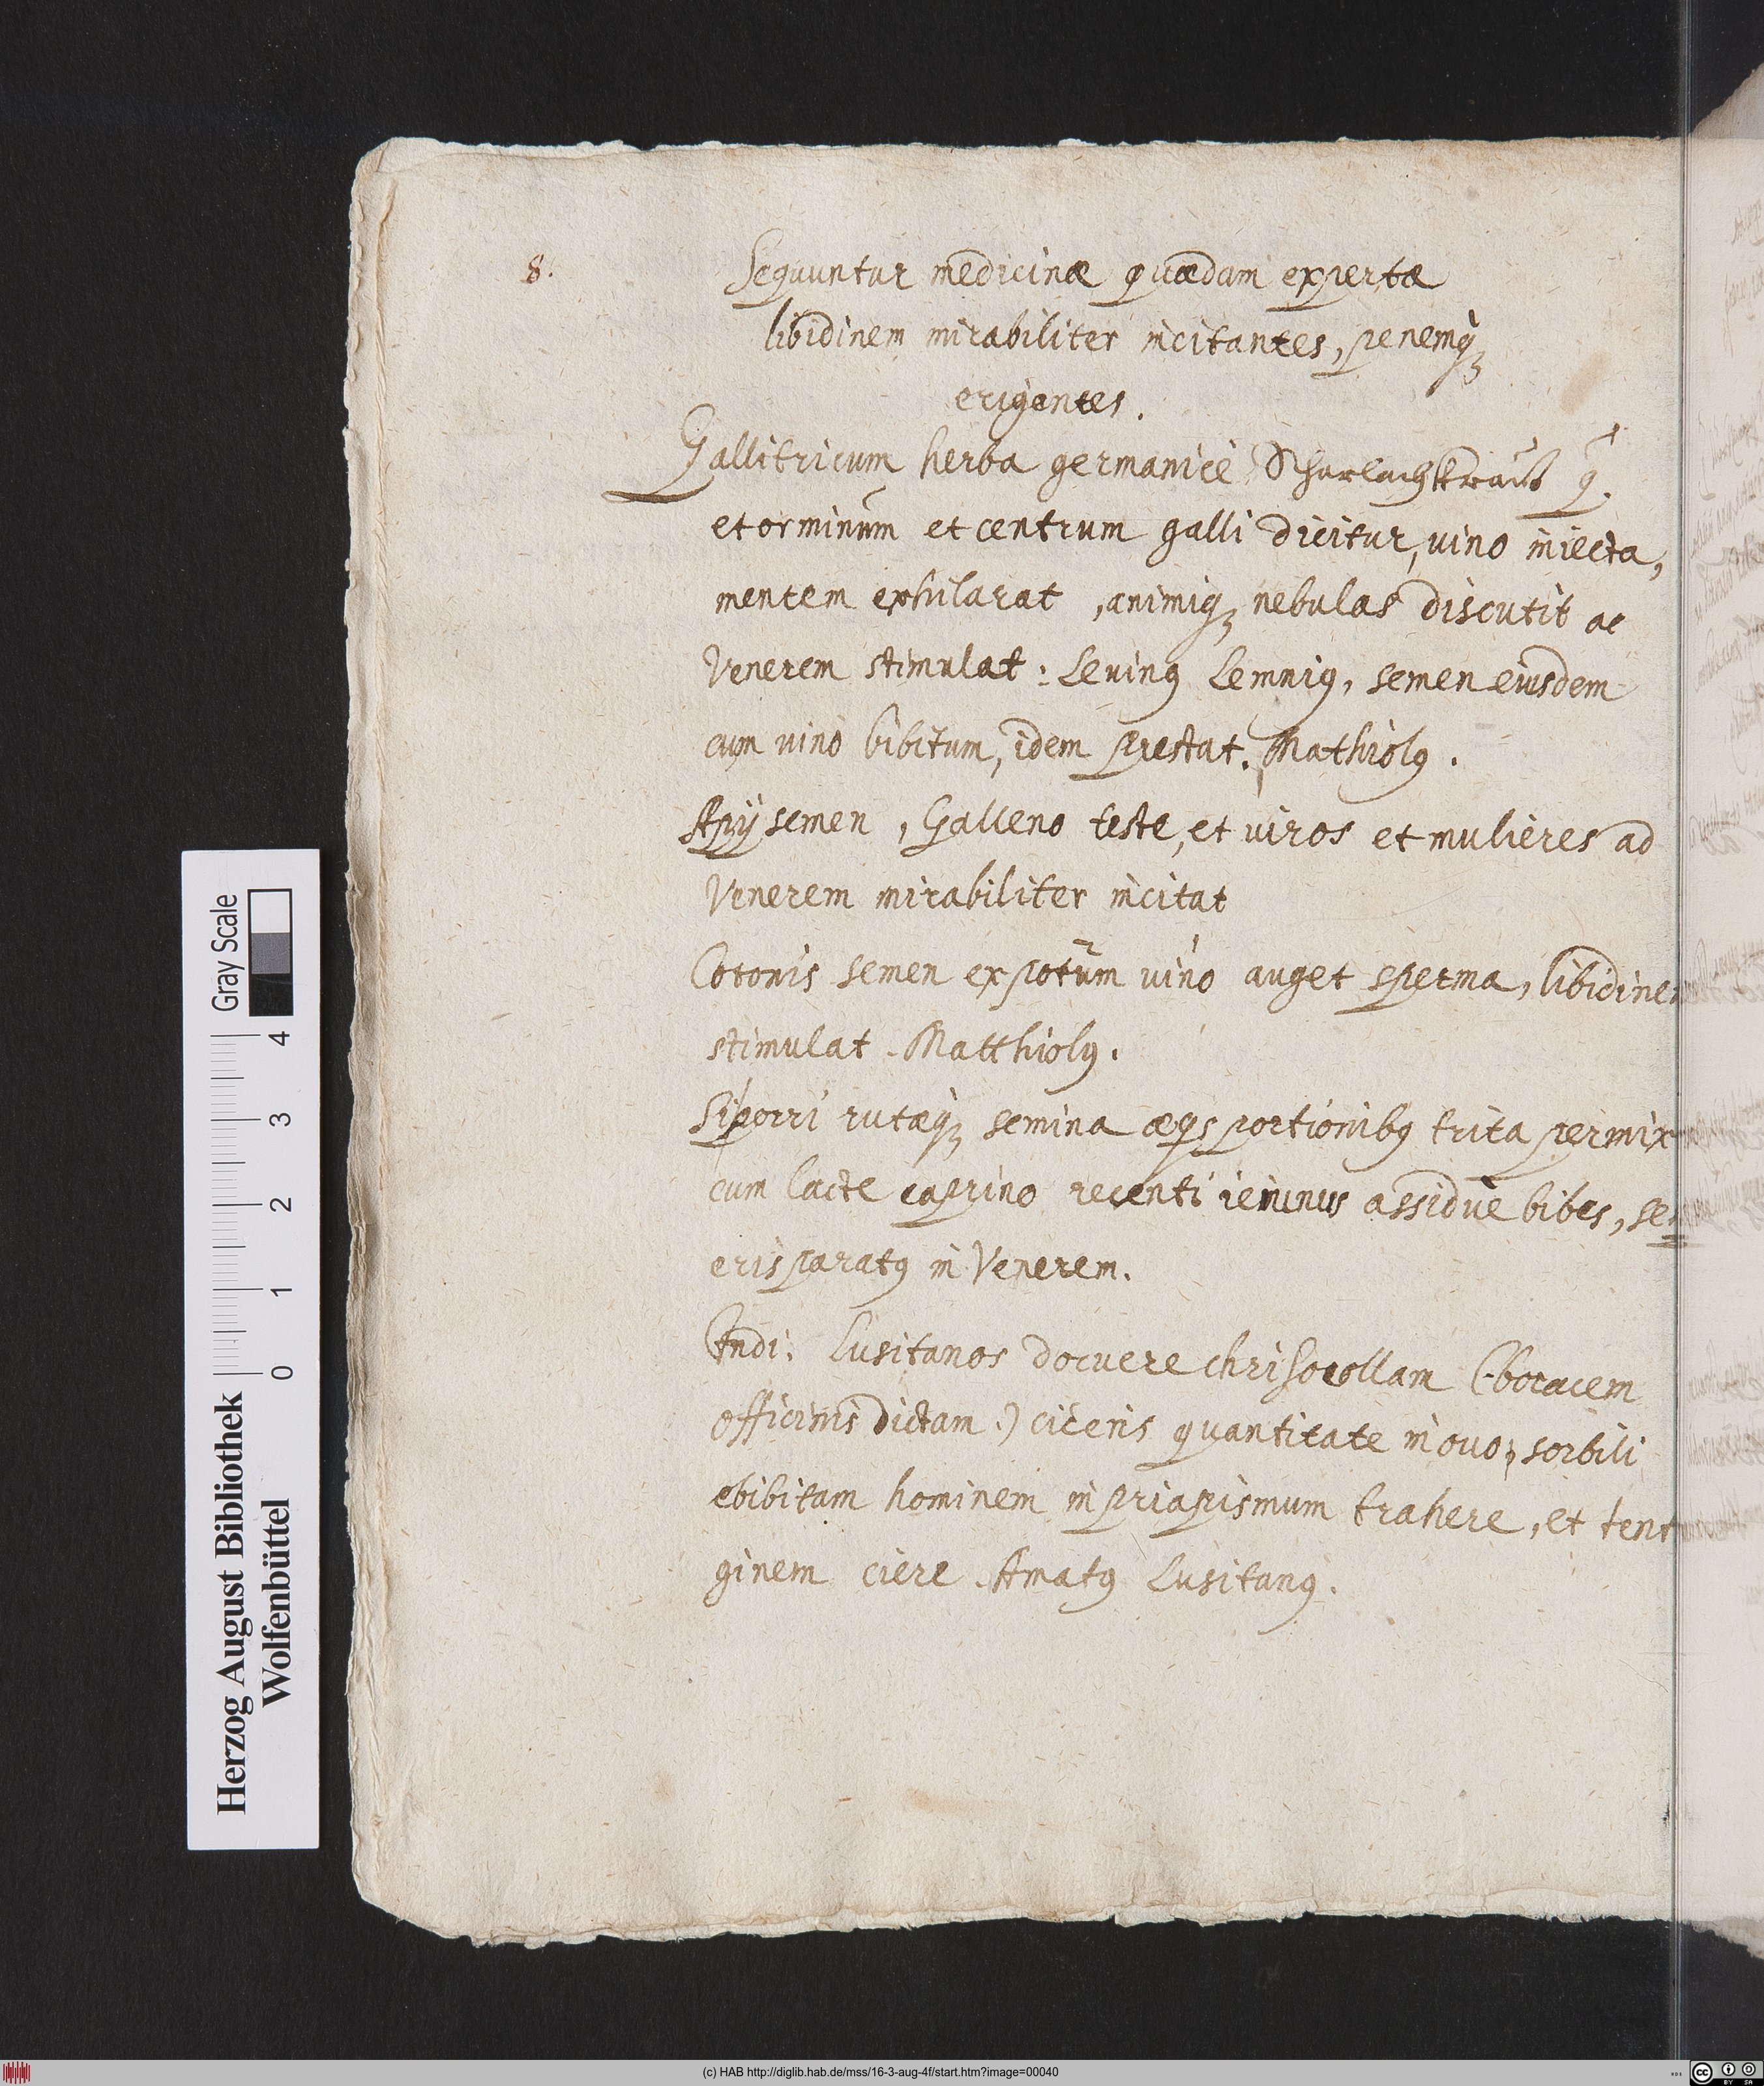 8.
Sequuntur medicinæ quædam expertæ
libidinem mirabiliter incitantes, penemqꝫ
erigentes.
Gallitricum herba germanicè Scharlachkraut
et orminum et centrum galli dicitur, vino iniecta,
mentem exhilarat, animiqꝫ nebulas discutit ac
Venerem stimulat: Levinꝰ Lemniꝰ, semen eiusdem
cum vino bibitum, idem prestat. Mathiolꝰ.
Apij semen, Galleno teste, et viros et mulieres ad
Venerem mirabiliter incitat
semen expotum vino auget sperma, libidine
stimulat. Matthiolꝰ.
Si porri rutæqꝫ semina æqs portionibꝰ trita permix
cum lacte caprino recenti ieiunus assiduè bibes, se
eris paratꝰ in Venerem.
Indi: Lusitanos docuere chrisocollam (boracem
officinis dictam.) ciceris quantitate in ovo, sorbili
ebibitam hominem in priapismum trahere, et tent
ginem ciere. Amatꝰ Lusitanꝰ.
Gray Scale
4 3 2 1 0
Herzog August Bibliothek
Wolfenbüttel
(c) HAB http://diglib.hab.de/mss/16-3-aug-4f/start.htm?image=00040
cc BY SA